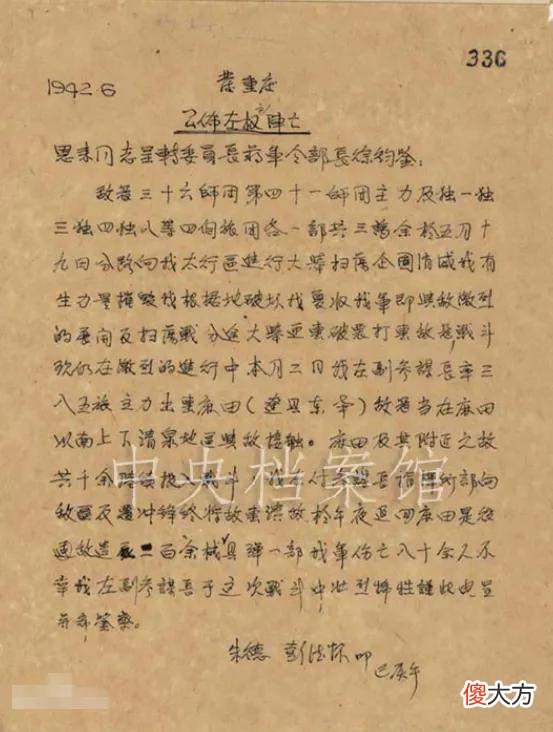 336
1942.6
发重庆
公布左权之阵亡
恩来同志呈转委员长蒋军令部长徐钧鉴:
敌寇三十六师团第四十一师团主力及独一独
三独四独八等四个旅团各一部共三万余于五月十
九日分路向我太行区进行大举扫荡企图消灭我有
生力量摧毁我根据地破坏我夏收我军即与敌激烈
的展开反扫荡战分途大举亚袭破袭打击敌寇战斗
现仍在激烈的进行中本月二日我左副参谋长率三
八五旅主力出击麻田(辽县东南)敌寇当在麻田
以南上下清泉地区与敌接触。麻田及其附近之敌
共千余陆续投入战斗我左副参谋长指挥所部向
敌反复冲锋终将敌击溃敌于午夜退回麻田是役
毙敌造二百余械弹一部我军伤亡八十余人不
幸我左副参谋长于这次战斗中壮烈牺牲谨此电呈
并希鉴察。
朱德 彭德怀叩
已庚午
中央档案馆
傻大方